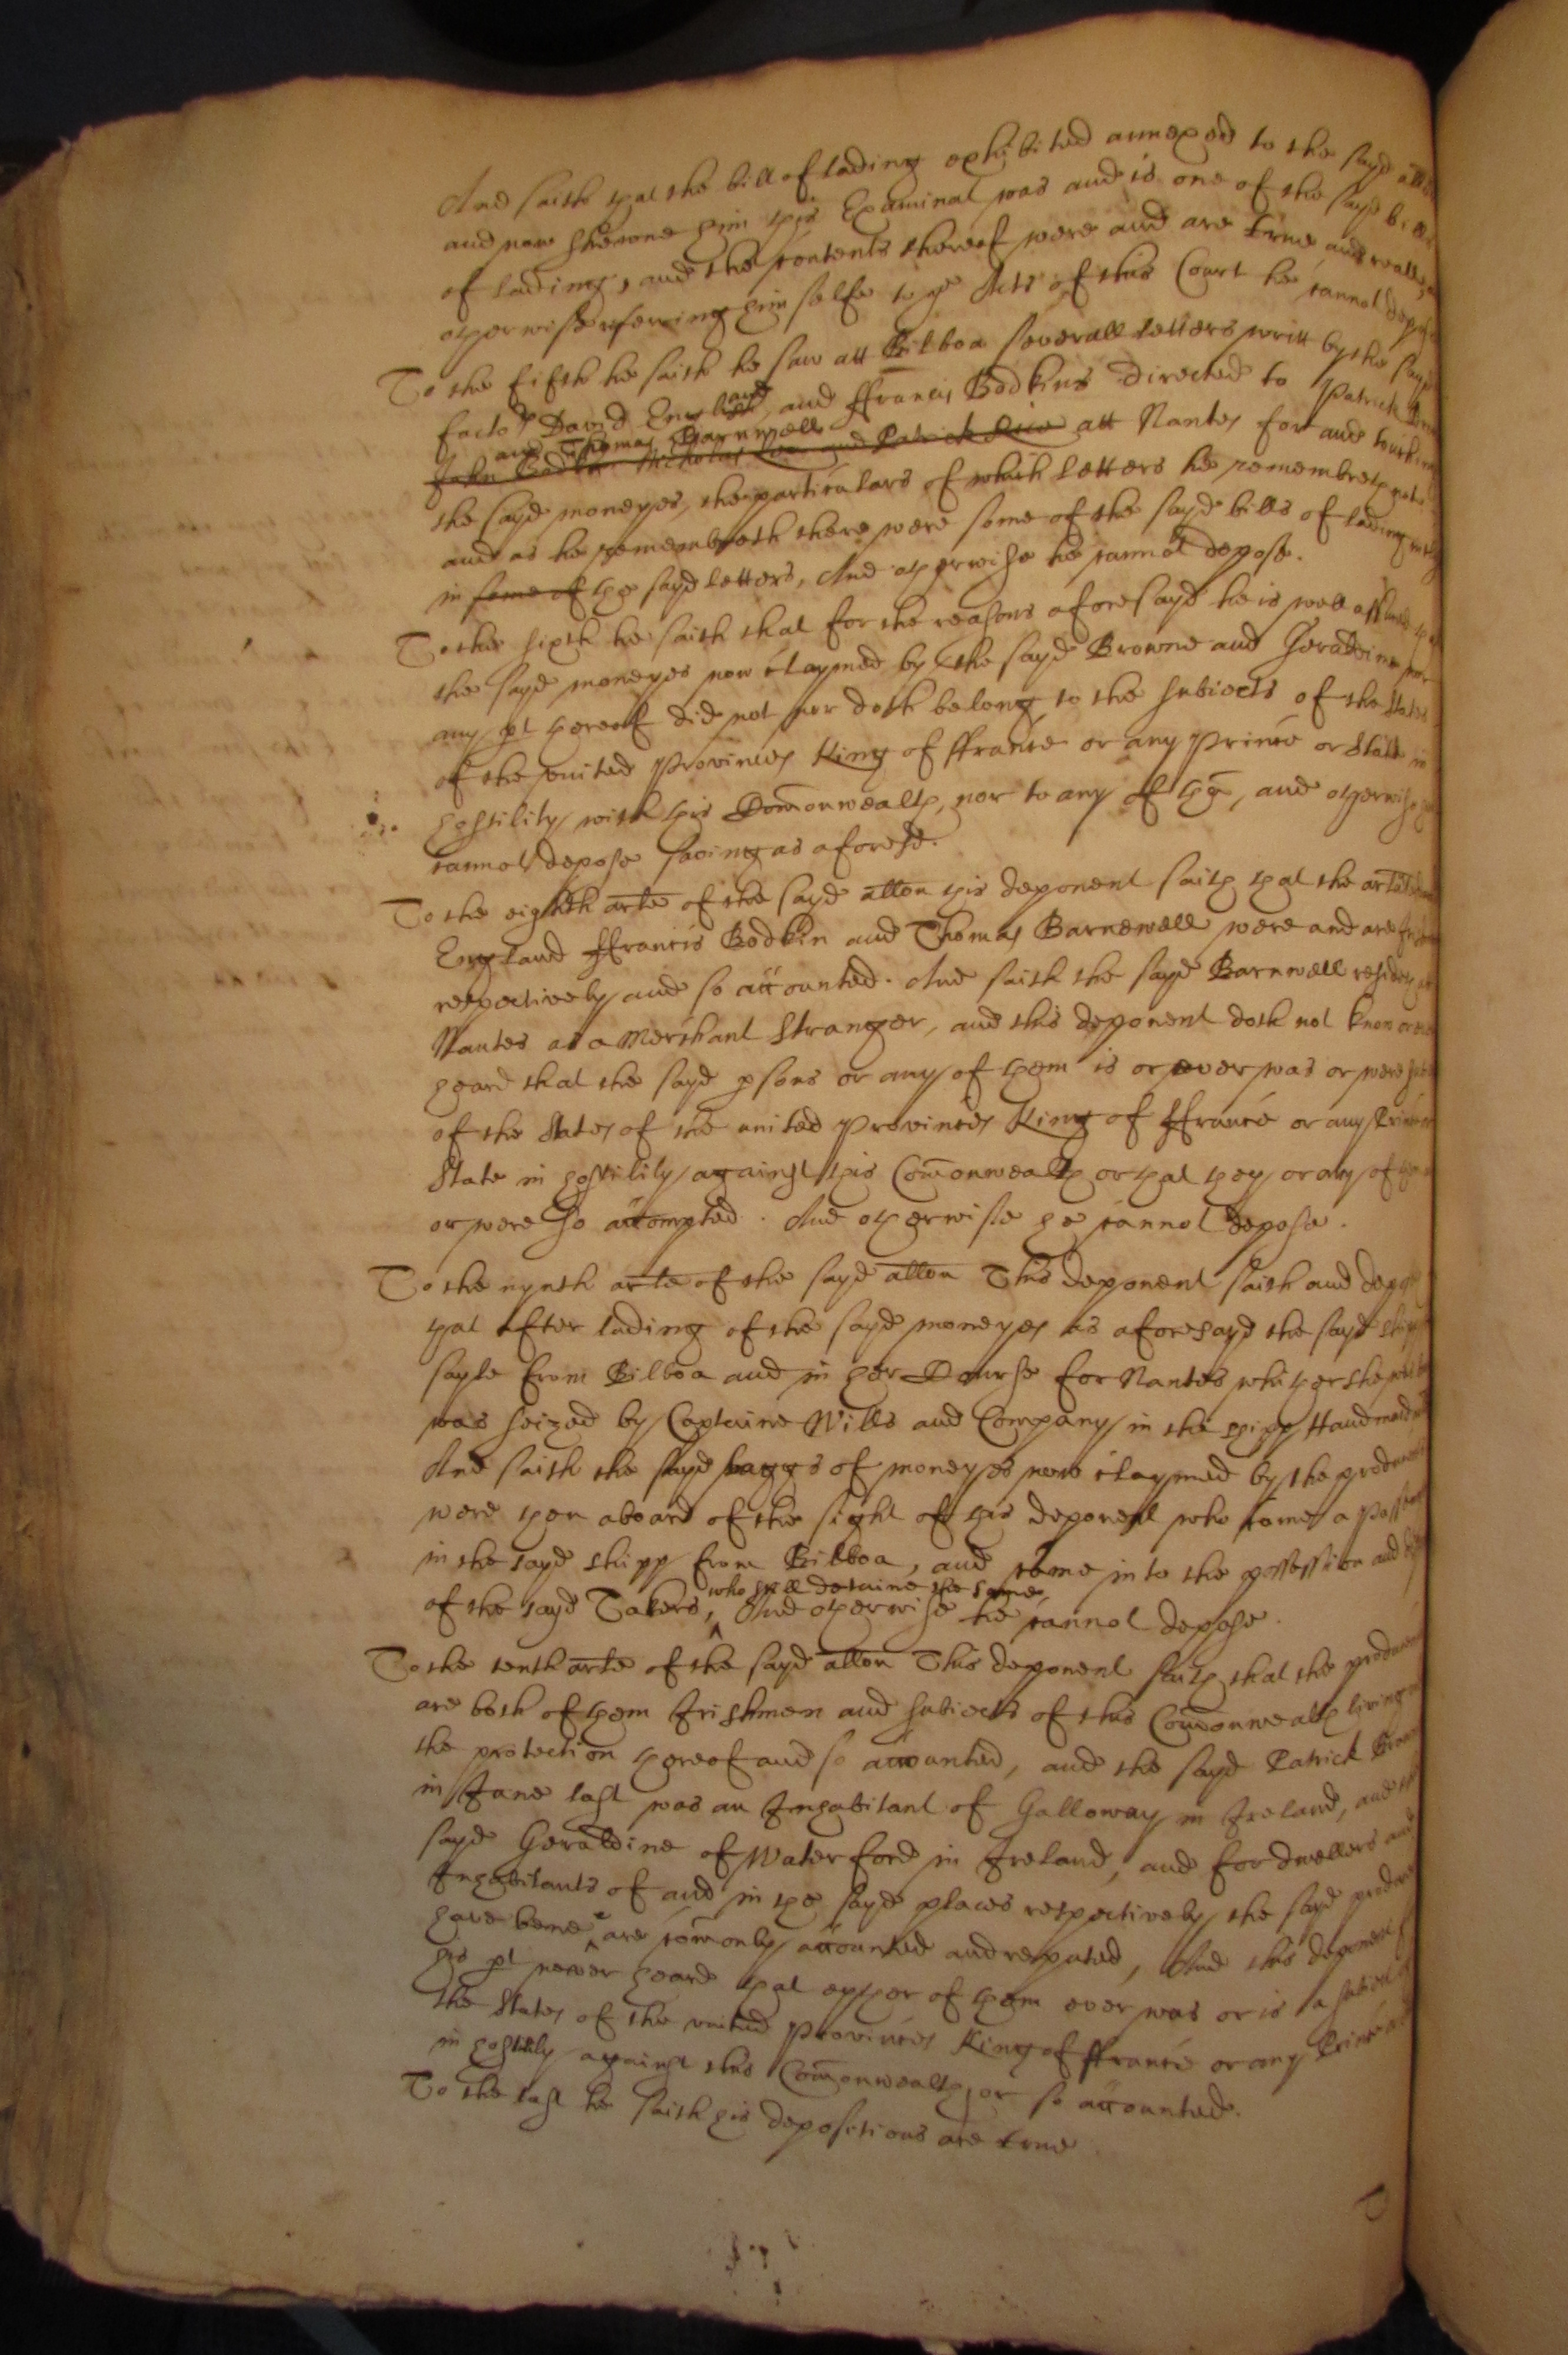 And saith that the bill of lading exhibited annexed to the sayd
and now shewne him this Examinat was and is one of the sayd bills
of lading, and the contents thereof were and are true and reall,
otherwise referring him selfe to ye Acts of this Court he cannot depose
To the fifth he saith he saw att Bilboa severall letters writt by the sayd
factors David England, and ffrancis Bodkins directed to Patrick
and Thomas Barnwell
John Bodkin Nicholas Lee and Patrick Rice att Nantes for and touching
the sayd moneyes, the particulars of which letters he remembreth not
and as he remembreth there were some of the sayd bills of lading
in some of the sayd letters, And otherwise he cannot depose.
To the sixth he saith that for the reasons aforesayd he is well assured
the sayd moneyes now claymed by the sayd Browne and Geraldine nor
any pt thereof did not nor doth belong to the subiects of the States
of the united Provinces King of ffrance or any Prince or State in
hostility with this Com̄onwealth, nor to any of thē, and otherwise he
cannot depose saving as aforesd.
To the eighth arte of the sayd allon this deponent saith that the
England ffrancis Bodkin and Thomas Barnewell were and are
respectively and so accounted. And saith the sayd Barnwell resides at
Nantes as a Merchant Stranger, and this deponent doth not know or
heard that the sayd psons or any of them is or ever was or were
of the States of the united Provinces King of ffrance or any Prince or
State in hostility against this Com̄onwealth or that they or any of them
or were so accompted. And otherwise he cannot depose.
To the nynth arte of the sayd allon This deponent saith and
that after lading of the sayd moneyes as aforesayd the sayd shipp
sayle from Bilboa and in her Course for Nantes whither she
was seized by Captaine Wills and Company in the shipp Handmayd
And saith the sayd baggs of moneyes now claymed by the producents
were then aboard of the sight of this deponent who came a passenger
in the sayd shipp from Bilboa, and came in to the possession and
who still detaine the same,
of the sayd Takers, And otherwise he cannot depose.
To the tenth arte of the sayd allon This deponent saith that the producents
are both of them Irishmen and subiects of this Com̄onwealth living
the protection thereof and so accounted, and the sayd Patrick Browne
in June last was an Inhabitant of Galloway in Ireland, and the
sayd Geraldine of Waterford in Ireland, and for dwellers and
Inhabitants of and in the sayd places respectively the sayd producents
have bene & are com̄only accounted and reputed, And this deponent for
his pt never heard that eyther of them ever was or is a subiect of
the States of the united Provinces King of ffrance or any Prince
in hostility against this Com̄onwealth, or so accounted.
To the last he saith his depositions are true.